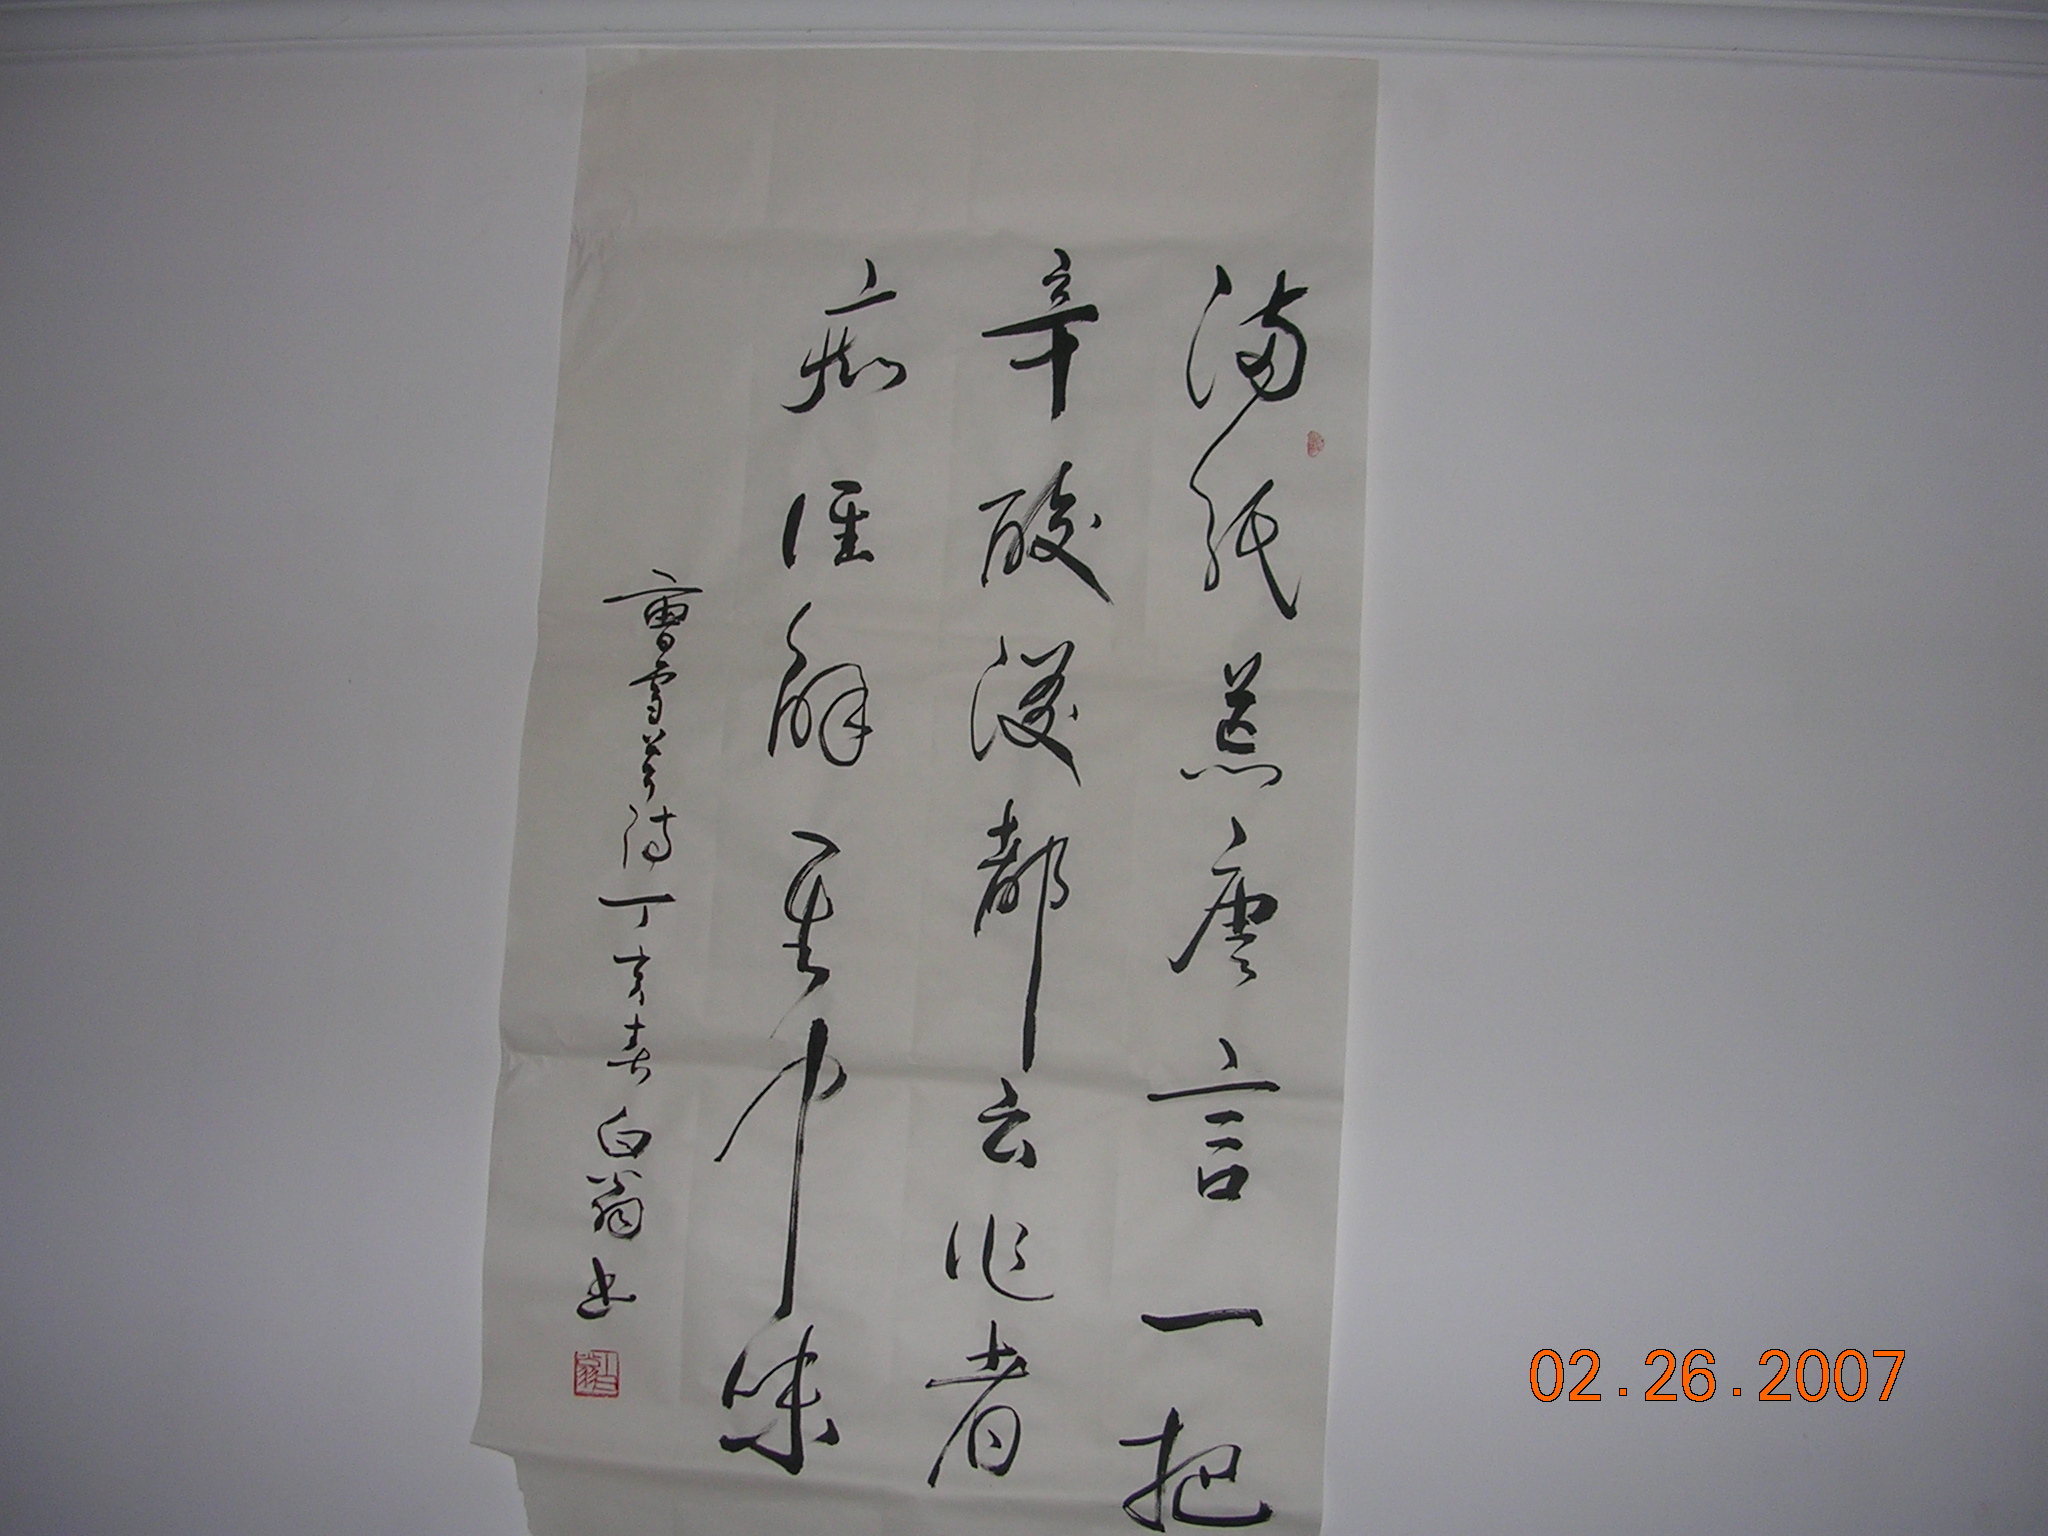 满纸荒唐言一把
辛酸淚都云作者
痴谁解其中味
曹雪芹诗丁亥春白翁书
02.26.2007